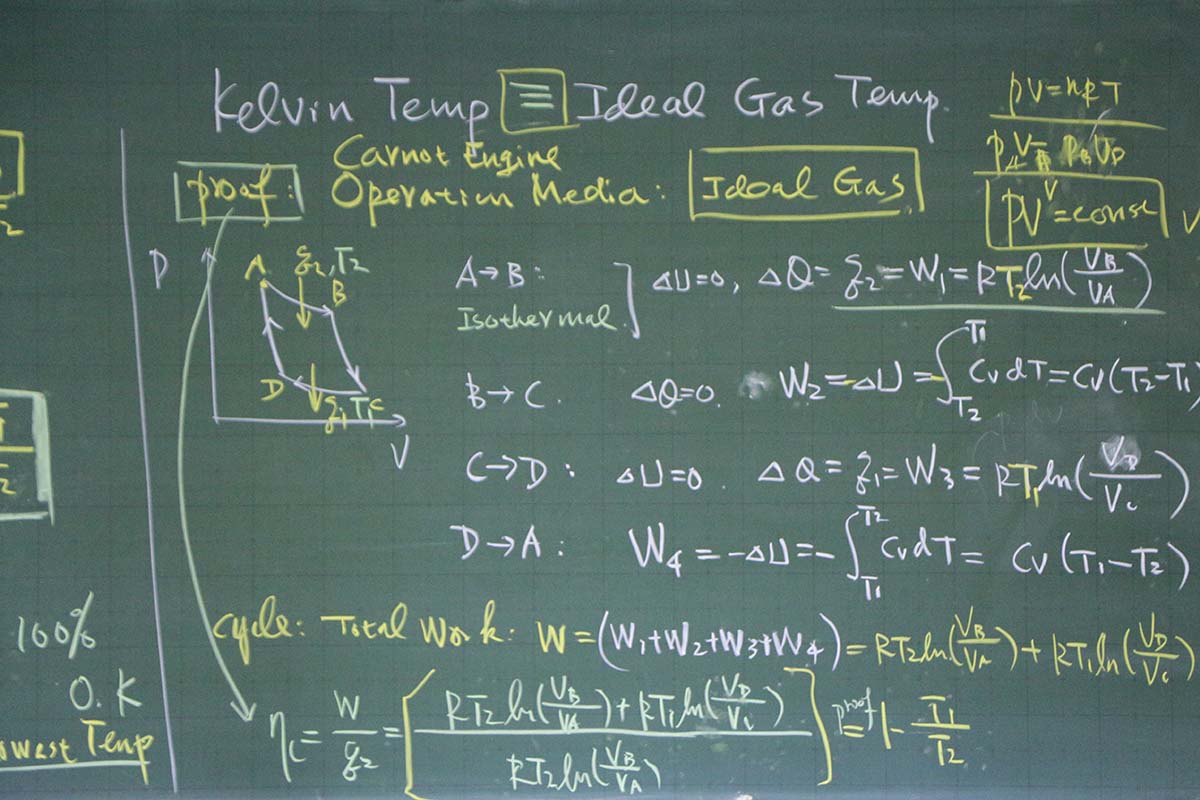 Kelvin Temp ≡ Ideal Gas Temp.
PV=nRT
PV^γ=const
proof:
Carnot Engine
Operation Media: Ideal Gas
P
A
q2,T2
B
D
q1,T1
C
V
A→B:
Isothermal
ΔU=0, ΔQ=q2=W1=RT2ln(VB/VA)
B→C. ΔQ=0. W2=-ΔU=-∫T2 T1 CvdT=Cv(T2-T1
C→D: ΔU=0. ΔQ=q1=W3=RT1ln(VD/Vc)
D→A: W4=-ΔU=-∫T1 T2 CvdT=Cv(T1-T2)
Cycle: Total Work: W=(W1+W2+W3+W4)=RT2ln(VB/VA)+RT1ln(VD/Vc)
ηc=W/q2=[RT2ln(VB/VA)+RT1ln(VD/Vc) / RT2ln(VB/VA)] proof = 1-T1/T2
100%
0.K
owest Temp